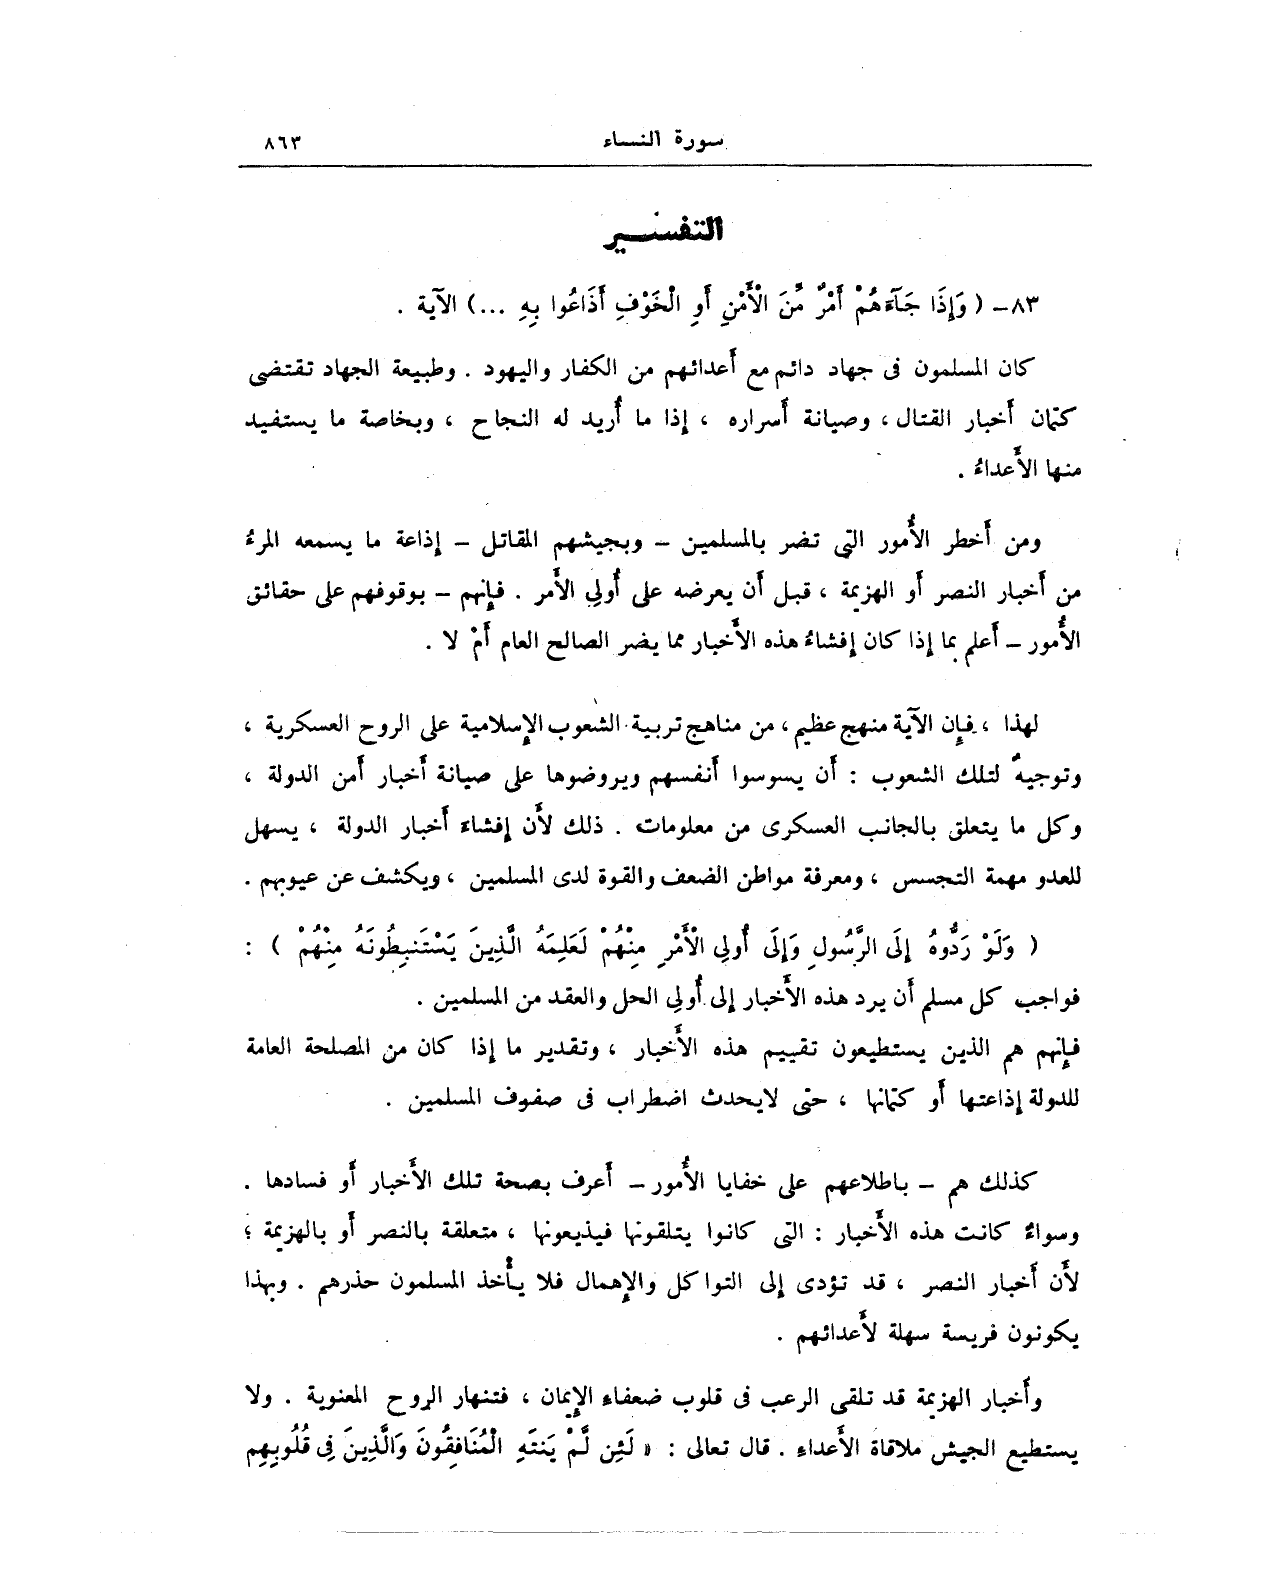 سورة النساء ٨٦٣
التفسير
٨٣- ( وَإِذَا جَآءَهُمْ أَمْرٌ مِّنَ الْأَمْنِ أَوِ الْخَوْفِ أَذَاعُوا بِهِ ...) الآية .
كان المسلمون فى جهاد دائم مع أعدائهم من الكفار واليهود . وطبيعة الجهاد تقتضى
كتمان أخبار القتال ، وصيانة أسراره ، إذا ما أُريد له النجاح ، وبخاصة ما يستفيد
منها الأَعداءُ .
ومن أَخطر الأُمور التى تضر بالمسلمين - وبجيشهم المقاتل - إذاعة ما يسمعه المرءُ
من أَخبار النصر أَو الهزيمة ، قبل أَن يعرضه على أُولِى الأَمر . فإنهم - بوقوفهم على حقائق
الأُمور - أَعلم بما إذا كان إفشاءُ هذه الأَخبار مما يضر الصالح العام أَمْ لا .
لهذا ، فإن الآية منهج عظيم ، من مناهج تربية الشعوب الإسلامية على الروح العسكرية ،
وتوجيهٌ لتلك الشعوب : أَن يسوسوا أَنفسهم ويروضوها على صيانة أَخبار أَمن الدولة ،
وكل ما يتعلق بالجانب العسكرى من معلومات . ذلك لأَن إفشاءَ أَخبار الدولة ، يسهل
للعدو مهمة التجسس ، ومعرفة مواطن الضعف والقوة لدى المسلمين ، ويكشف عن عيوبهم .
( وَلَوْ رَدُّوهُ إِلَى الرَّسُولِ وَإِلَى أُولِى الْأَمْرِ مِنْهُمْ لَعَلِمَهُ الَّذِينَ يَسْتَنبِطُونَهُ مِنْهُمْ ) :
فواجب كل مسلم أَن يرد هذه الأَخبار إلى أُولِى الحل والعقد من المسلمين .
فإنهم هم الذين يستطيعون تقييم هذه الأَخبار ، وتقدير ما إذا كان من المصلحة العامة
للدولة إذاعتها أَو كتمانها ، حتى لايحدث اضطراب فى صفوف المسلمين .
كذلك هم - باطلاعهم على خفايا الأُمور - أَعرف بصحة تلك الأَخبار أَو فسادها .
وسواءٌ كانت هذه الأَخبار : التى كانوا يتلقونها فيذيعونها ، متعلقة بالنصر أَو بالهزيمة ؛
لأَن أَخبار النصر ، قد تؤدى إلى التواكل والإهمال فلا يأْخذ المسلمون حذرهم . وبهذا
يكونون فريسة سهلة لأَعدائهم .
وأَخبار الهزيمة قد تلقى الرعب فى قلوب ضعفاء الإيمان ، فتنهار الروح المعنوية . ولا
يستطيع الجيش ملاقاة الأَعداء . قال تعالى : « لَئِن لَّمْ يَنتَهِ الْمُنَافِقُونَ وَالَّذِينَ فِى قُلُوبِهِم